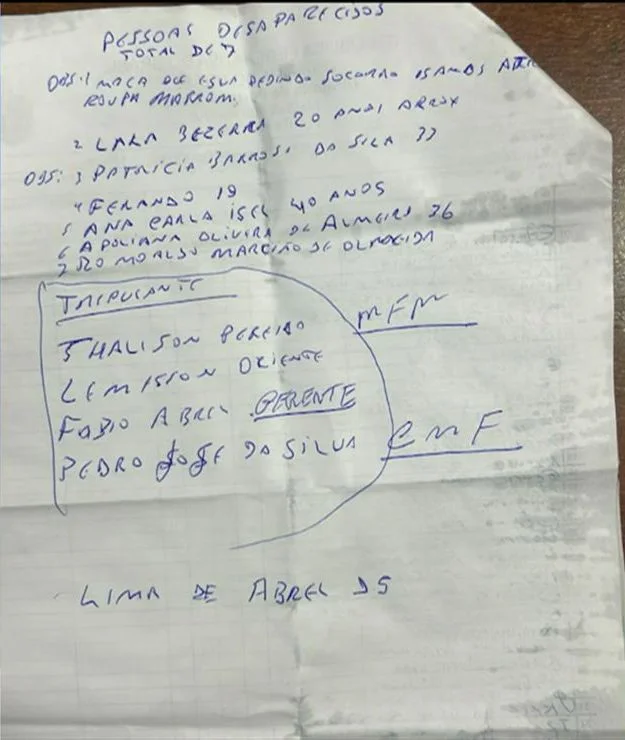 PESSOAS DESAPARECIDOS
TOTAL DE 7
OBS: 1 MACA QUE ESUA PEDINDO SOCORRO 15 ANOS
ROUPA MARROM.
2 LARA BEZERRA 20 ANOS APROX
OBS: 3 PATRICIA BARROS. DA SILA 33
4 FERANDO 19
5 ANA CARLA ISEL 40 ANOS
6 APOLIANA OLIVIRA DE ALMEIRA 36
7 MARCIÃO DE OLMEIDA
TRIPULANTE
THALISON PEREIRO
LEMISSON ORIENTE
FABIO ABREL GERENTE
PEDRO JOSE DA SILVA
MFM
EMF
LIMA DE ABREL 25